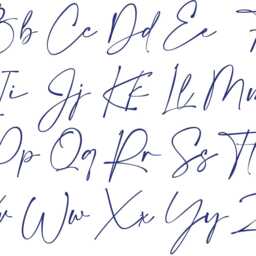 Bb Cc Dd Ee F
Ii Jj Kk Ll Mm
Pp Qq Rr Ss Tt
Vv Ww Xx Yy Z